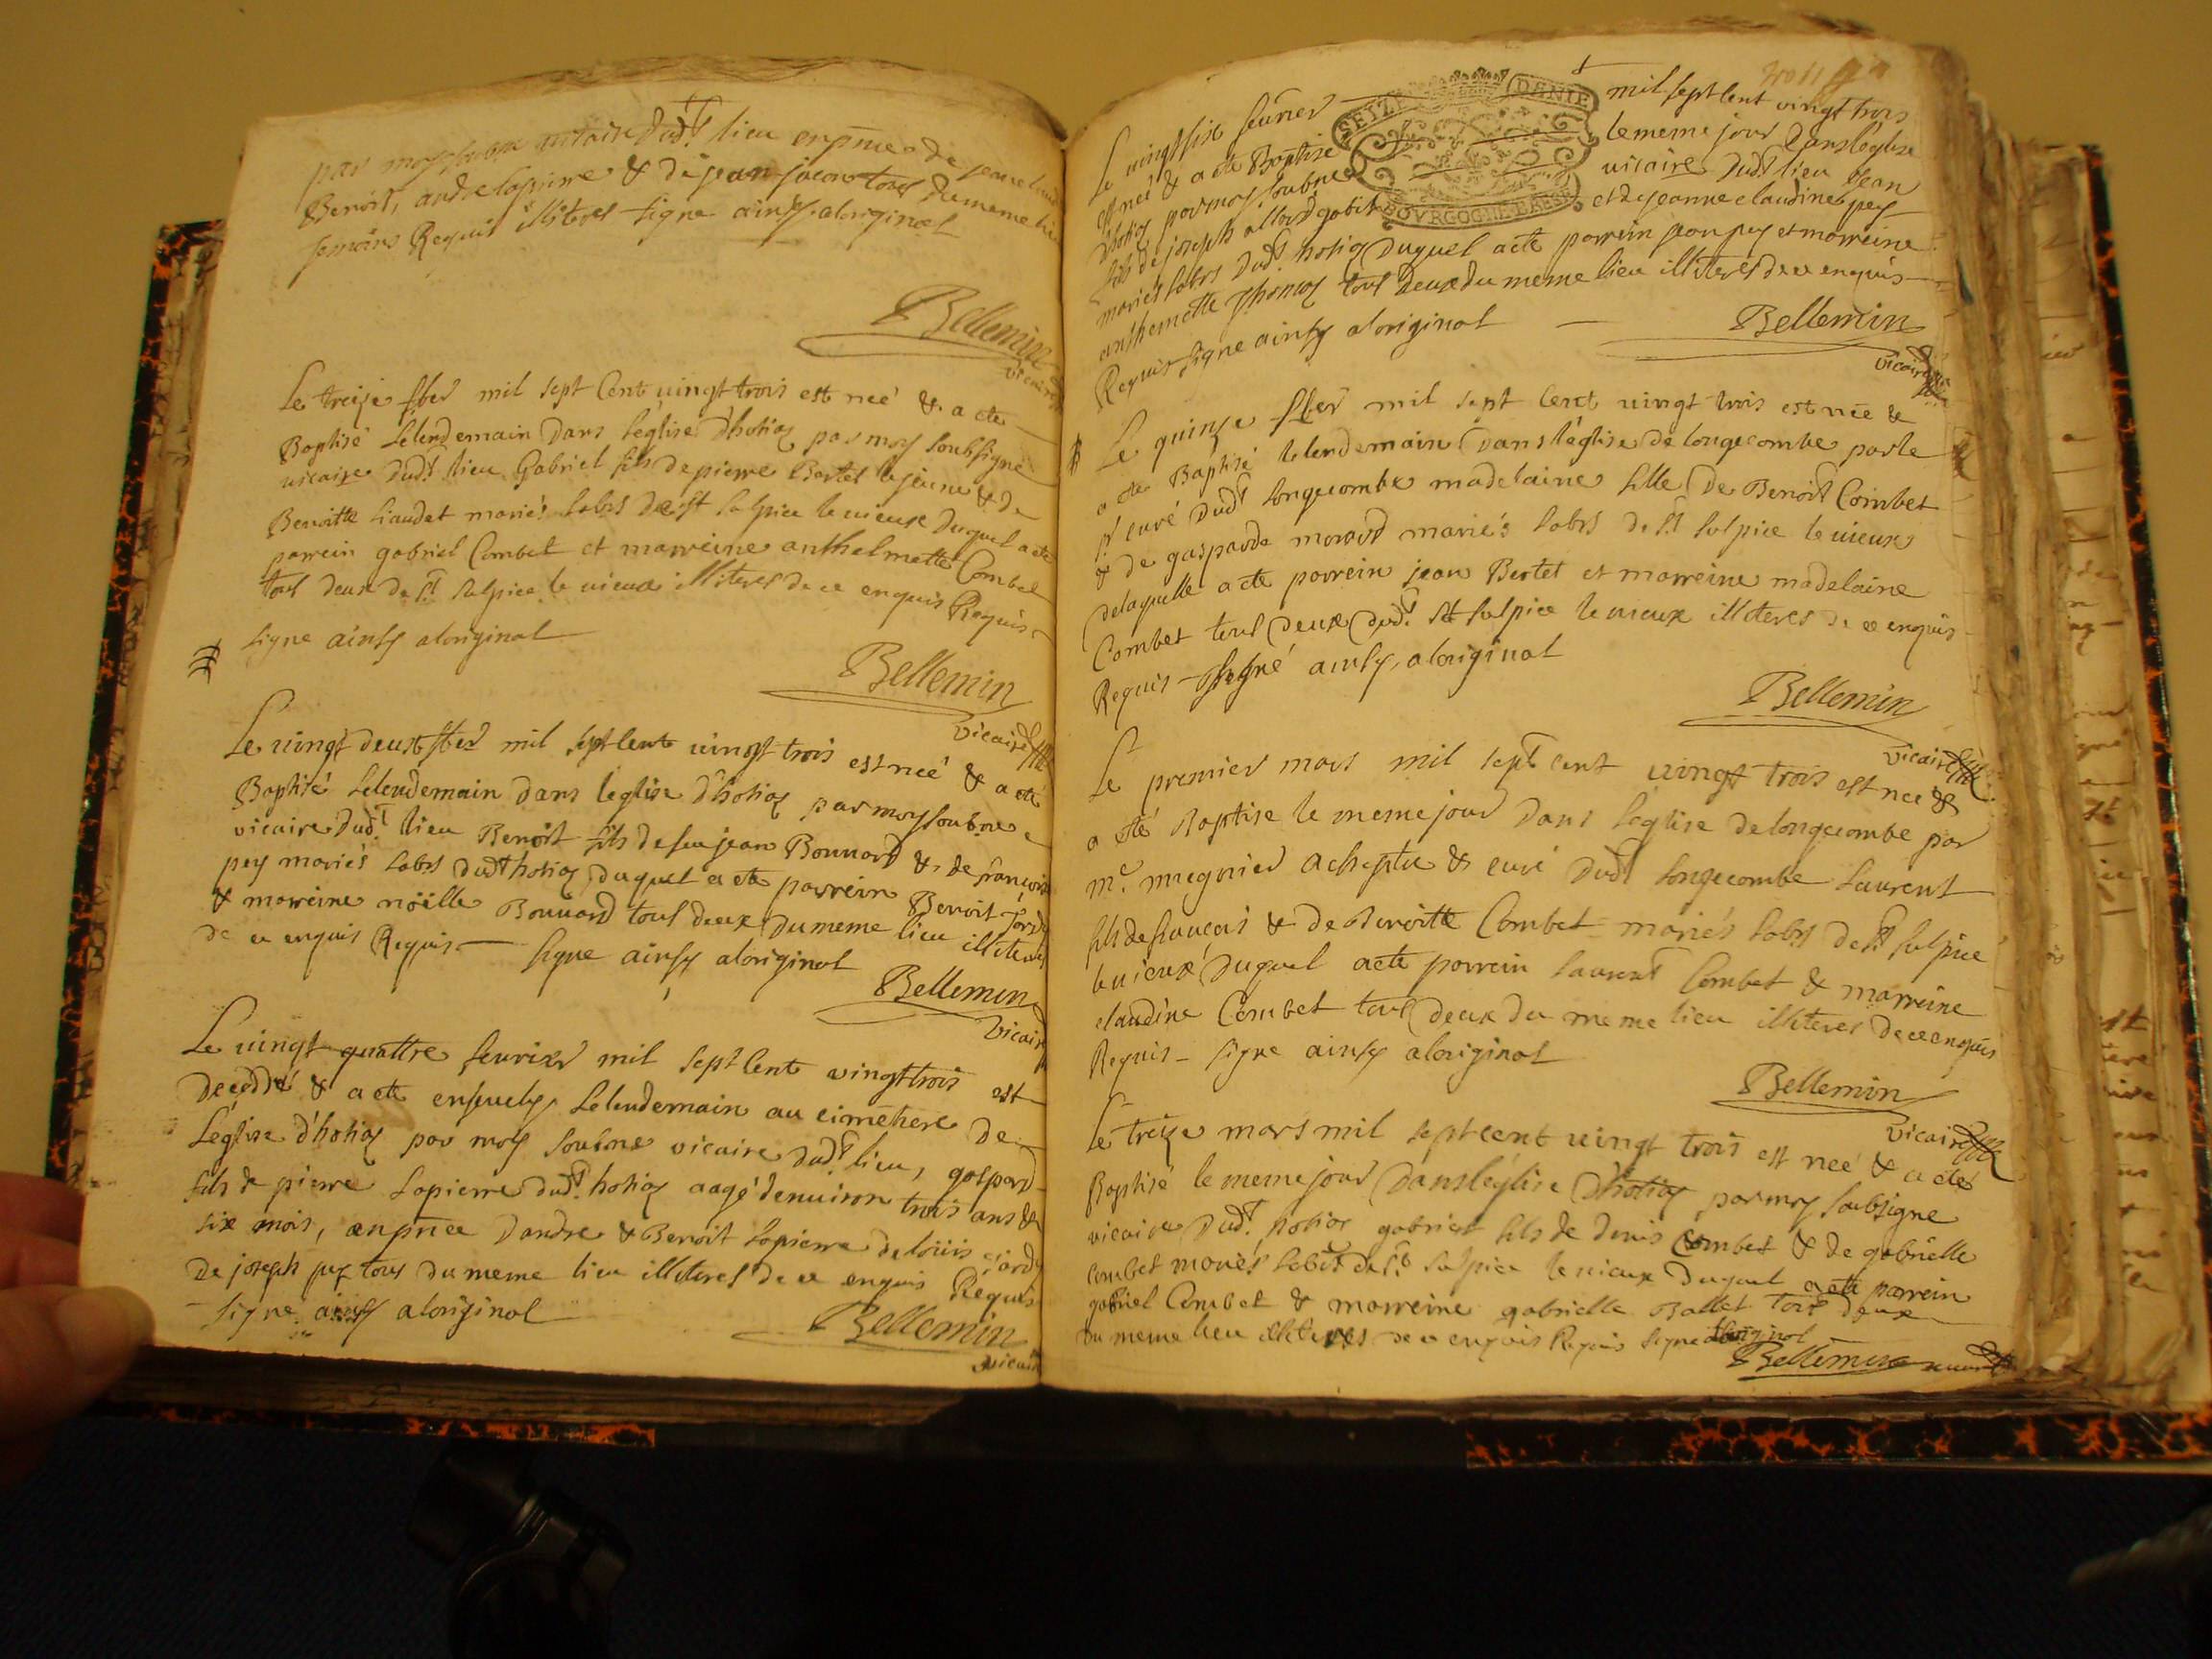 par moy vicaire dudt lieu en pnce de
Benoit, andre lapierre & de jean tous du meme lieu
Requis illiteres signe ainsy aloriginal
Bellemin
vicaire
Le treize fber mil sept Cent vingt trois est neé & a ete
Baptisé Lelendemain dans leglise d'hotiog par moy soubsigné
vicaire dudt lieu Gabriel fils de pierre Bertet le jeune & de
Benoitte Liaudet mariés labrs de st sulpice le vieux duquel a ete
parrein gabriel Combet et marreine anthelmette Combet
tous deux de st sulpice le vieux illiteres de ce enquis Requis
signe ainsy aloriginal
Bellemin
vicaire
Le vingt deux fber mil sept Cent vingt trois est neé & a eté
Baptisé Lelendemain dans leglise d'hotiog par moy soubne
vicaire dudt lieu Benoit fils de feu jean Bonnard & de françoise
pey mariés labrs dudt hotiog duquel a ete parrein Benoit
& marreine noëlle Bonnard tous deux du meme lieu illiteres
de ce enquis Requis signe ainsy aloriginal
Bellemin
vicaire
Le vingt quattre fevrier mil sept Cent vingt trois est
decedde & a ete ensevely Lelendemain au cimetiere de
Léglise d'hotiog par moy soubne vicaire dudt lieu, gaspard
fils de pierre Lapierre dudt hotiog aagé denuiron trois ans &
six mois, en pnce dandre & Benoit Lapierre de loüis
de joseph pey tous du meme lieu illiteres de ce enquis Requis
signe ainsy aloriginal
Bellemin
vicaire
SEIZE DENIE
BOVRGOGNE BRESSE
Le vingt six feurier mil sept Cent vingt trois
est neé & a ete Baptisé le meme jour dans léglise
d'hotiog par moy soubne vicaire dudt lieu jean
fils de joseph allard gobit et de jeanne claudine pey
mariés labrs dudt hotiog duquel a eté parrein jean pey et marreine
anthemette tous deux du meme lieu illiteres de ce enquis
Requis signe ainsy aloriginal
Bellemin
vicaire
Le quinze fber mil sept Cent vingt trois est née &
a ete Baptisé lelendemain dans léglise de longecombe par le
sr curé dudt longecombe madelaine fille de Benoit Combet
& de gasparde morard mariés labrs de st sulpice le vieux
delaquelle a ete parrein jean Bertet et marreine madelaine
Combet tous deux dudt st sulpice le vieux illiteres de ce enquis
Requis signé ainsy aloriginal
Bellemin
vicaire
Le premier mars mil sept cent vingt trois est neé &
a eté Baptise le meme jour dans leglise de longecombe par
me mugnier & curé dudt longecombe Laurent
fils de françois & de Benoitte Combet mariés labrs de st sulpice
le vieux duquel a ete parrein laurent Combet & marreine
claudine Combet tous deux du meme lieu illiteres de ce enquis
Requis signe ainsy aloriginal
Bellemin
vicaire
Le treize mars mil sept cent vingt trois est neé & a eté
Baptisé le meme jour dans léglise d'hotiog par moy soubsigne
vicaire dudt hotiog gabriel fils de denis Combet & de gabrielle
combet mariés labrs de st sulpice le vieux duquel a ete parrein
gabriel Combet & marreine gabrielle Ballet tous deux
du meme lieu illiteres de ce enquis Requis signe aloriginal
Bellemin